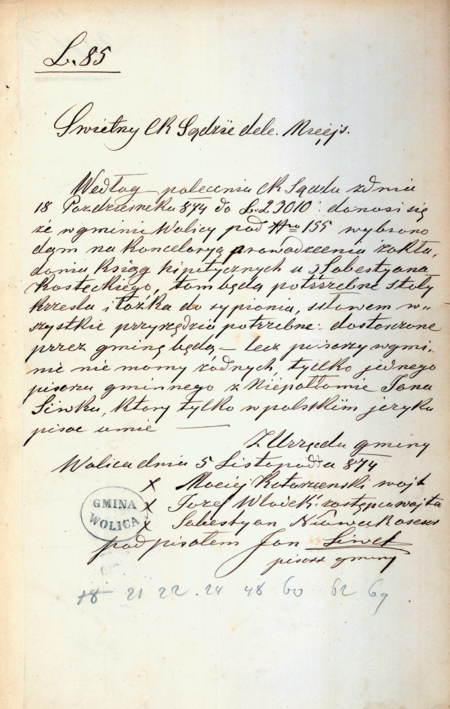 L. 85
Swietny CK Sądzie dele. Miejs.
Według polecenia CK Sądu zdnia
18 Pazdziernika 874 do L. 23010: donosi się
że wgminie Wolicy pod Nro 155 wybrano
dam na koncelaryą prowadzenia zakła,
dania Ksiąg hipitycznych u Sabestyana
Kostęckiego, tam będą potrzebne stoły
krzesła i łóżka do sypionia, słowem w-
szystkie przyrządzia potrzebne: dostarczone
przez gminę będą — lecz pisarzy wgmi,
nie nie momy żódnych, tylko jednego
pisarza gminnego z Niepołomic Jana
Siwka, który tylko wpolskim języku
pisac umie —
Z Urzędu gminy
Wolica dnia 5 Listopada 874
x Maciej wojt
x Jozef zastępca wojta
x Sabestyan
GMINA
WOLICA
podpisałem Jan Siwek
pisarz gminy
18 21 22 24 48 60 62 67